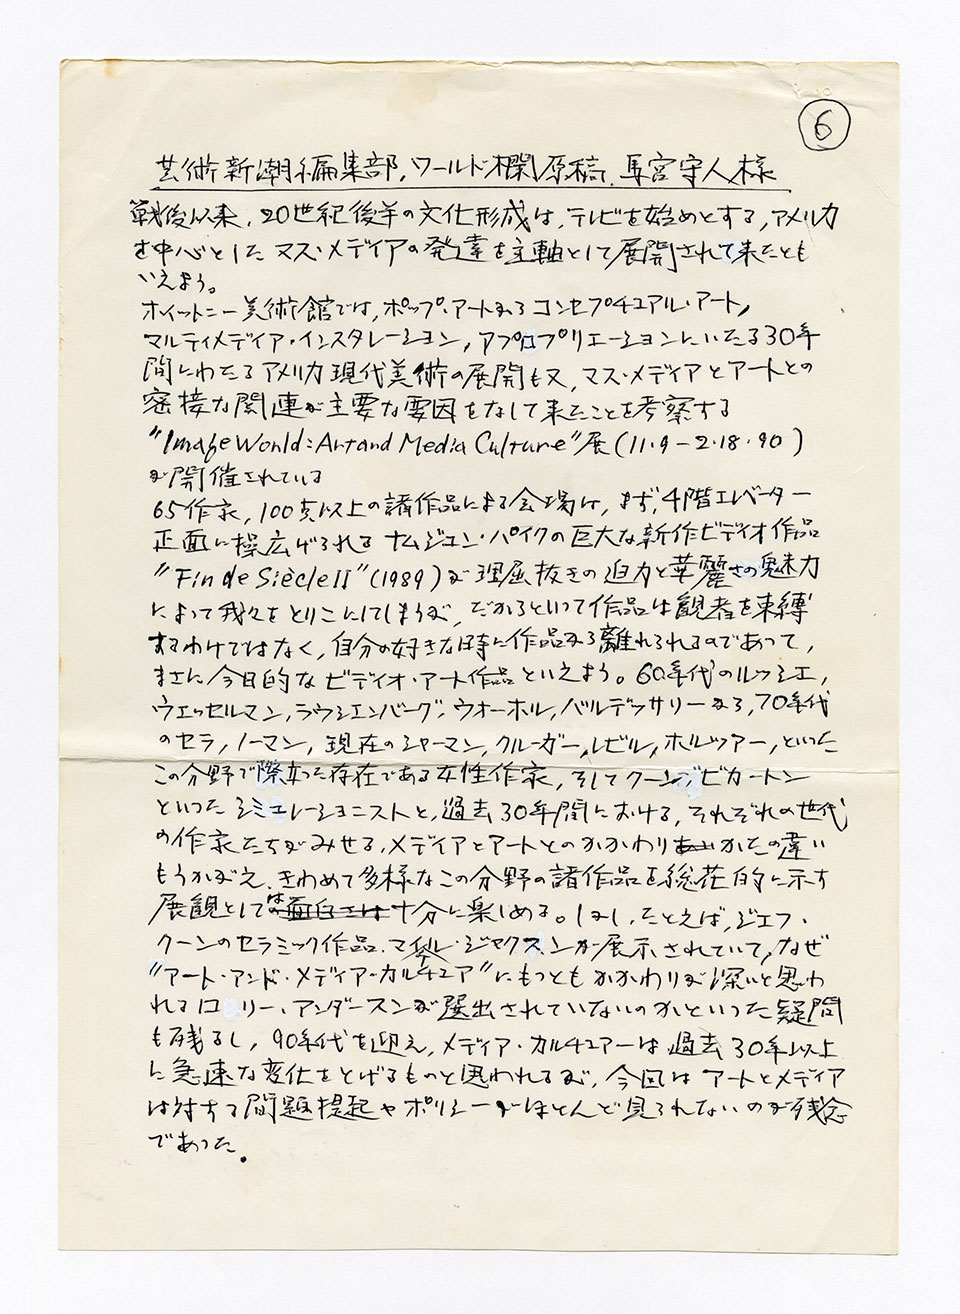 6
芸術新潮編集部,ワールド欄原稿.馬宮守人様
戦後以来,20世紀後半の文化形成は,テレビを始めとする,アメリカ
を中心とした マス・メディアの発達を主軸として展開されて来たとも
いえよう。
ホイットニー美術館では,ポップ・アートからコンセプチュアル・アート,
マルティメディア・インスタレーション,アプロプリエーションにいたる30年
間にわたるアメリカ現代美術の展開も又,マス・メディアとアートとの
密接な関連が主要な要因をなして来たことを考察する
"Image World: Art and Media Culture"展(11.9-2.18.90)
が開催されている
65作家,100点以上の諸作品による会場は,まず,4階エレベーター
正面に操広げられる ナムジュン・パイクの巨大な新作ビディオ作品
"Fin de Siècle II"(1989)が理屈抜きの迫力と華麗さの魅力
によって我々をとりこにしてしまうが,だからといって作品は観者を束縛
するわけではなく,自分の好きな時に作品から離れられるのであって,
まさに今日的なビディオ・アート作品といえよう。60年代のルッシェ,
ウェッセルマン,ラウシェンバーグ,ウォーホル,バルデッサリーから,70年代
のセラ,ノーマン,現在のシャーマン,クルーガー,レビル,ホルツァー,といった
この分野で際立った存在である女性作家,そしてクーンズ,ビカートン
といったシミュレーショニストと,過去30年間における,それぞれの世代
の作家たちがみせる,メディアとアートとのかかわりかたの違い
もうかがえ,きわめて多様なこの分野の諸作品を総花的に示す
展観としては面白さは十分に楽しめる。しかし,たとえば,ジェフ・
クーンのセラミック作品.マイケル・ジャクスンが展示されていて,なぜ
"アート・アンド・メディア・カルチュア"にもっともかかわりが深いと思わ
れるローリー・アンダースンが選出されていないのかといった疑問
も残るし,90年代を迎え,メディア・カルチュアーは過去30年以上
に急速な変化をとげるものと思われるが,今回はアートとメディア
は対する問題提起やポリシーがほとんど見られないのが残念
であった.